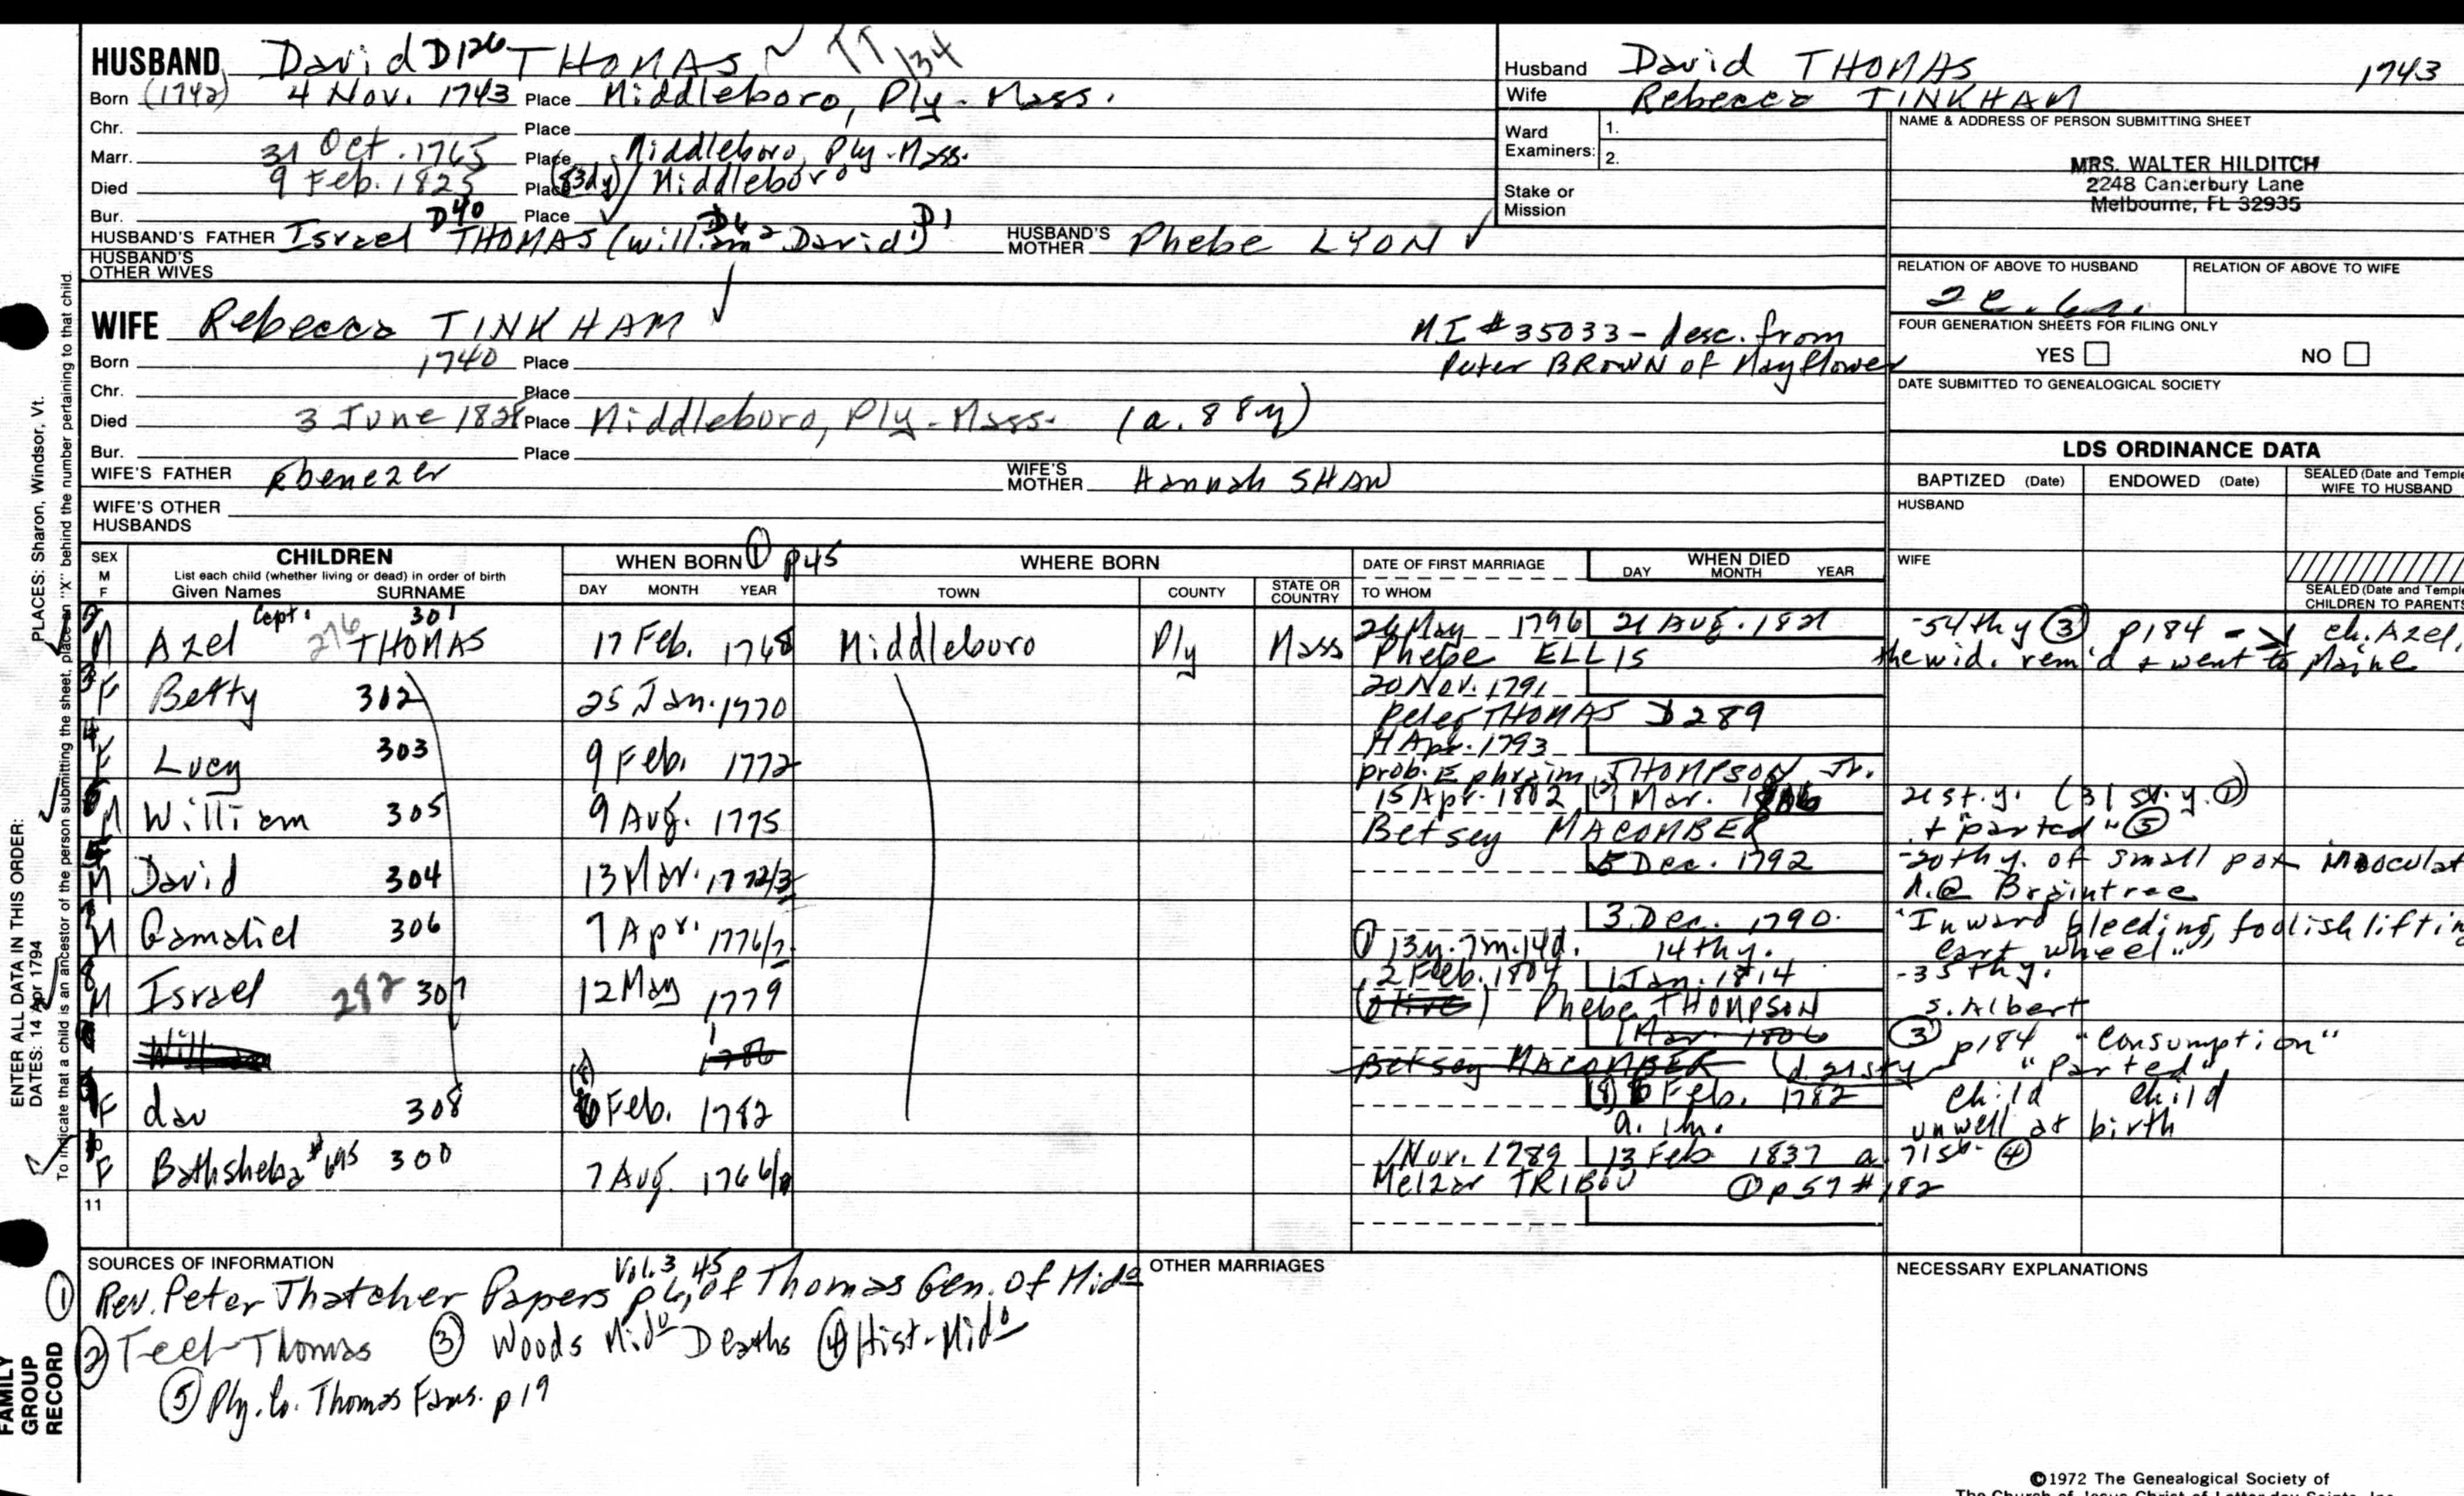 HUSBAND David D126 THOMAS TT 134
Born (1742) 4 Nov. 1743 Place Middleboro, Ply-Mass.
Chr. Place
Marr. 31 Oct. 1765 Place Middleboro, Ply-Mass.
Died 9 Feb. 1825 Place (83dy) Middleboro
Bur. Place
HUSBAND'S FATHER Israel D40 THOMAS (William² D6 David¹) D1 HUSBAND'S MOTHER Phebe LYON
HUSBAND'S OTHER WIVES
WIFE Rebecca TINKHAM
MI #35033 - desc. from
Peter BROWN of Mayflower
Born 1740 Place
Chr. Place
Died 3 June 1828 Place Middleboro, Ply-Mass. (a. 88y)
Bur. Place
WIFE'S FATHER Ebenezer WIFE'S MOTHER Hannah SHAW
WIFE'S OTHER HUSBANDS
Husband David THOMAS 1743
Wife Rebecca TINKHAM
Ward Examiners: 1.
2.
Stake or Mission
NAME & ADDRESS OF PERSON SUBMITTING SHEET
MRS. WALTER HILDITCH
2248 Canterbury Lane
Melbourne, FL 32935
RELATION OF ABOVE TO HUSBAND RELATION OF ABOVE TO WIFE
FOUR GENERATION SHEETS FOR FILING ONLY
YES NO
DATE SUBMITTED TO GENEALOGICAL SOCIETY
LDS ORDINANCE DATA
BAPTIZED (Date) ENDOWED (Date) SEALED (Date and Temple
WIFE TO HUSBAND
HUSBAND
WIFE
SEALED (Date and Temple
CHILDREN TO PARENTS
SEX M F
CHILDREN
List each child (whether living or dead) in order of birth
Given Names SURNAME
WHEN BORN ① p45
DAY MONTH YEAR
WHERE BORN
TOWN COUNTY STATE OR COUNTRY
DATE OF FIRST MARRIAGE
TO WHOM
WHEN DIED
DAY MONTH YEAR
2 M Azel Capt. 276 301 THOMAS 17 Feb. 1768 Middleboro Ply Mass 26 May 1796 21 Aug. 1821 -54thy ③ p184 ch. Azel,
Phebe ELLIS the wid. rem'd + went to Maine
3 F Betty 302 25 Jan. 1770 20 Nov. 1791
Peter THOMAS D289
4 F Lucy 303 9 Feb. 1772 Apr. 1793
prob. Ephraim THOMPSON Jr.
6 M William 305 9 Aug. 1775 15 Apr. 1802 1 Mar. 1806 21st.y. (31st.y. ①)
Betsey MACOMBER + "parted" ⑤
5 M David 304 13 Mar. 1772/3 5 Dec. 1792 -20thy. of small pox
@ Braintree
M Gamaliel 306 7 Apr. 1776/7 3 Dec. 1790 "Inward bleeding, foolish liftin
① 13y. 7m. 14d. 14thy. cart wheel"
8 M Israel 282 307 12 May 1779 2 Feb. 1804 1 Jan. 1814 -35thy.
(Olive) Phebe THOMPSON s. Albert
William 1786 1 Mar. 1806 ③ p184 "Consumption"
Betsey MACOMBER (d. 21sty "parted"
9 F dau 308 6 Feb. 1782 (8) 6 Feb. 1782 child child
a. 1m. unwell at birth
10 F Bathsheba #695 300 7 Aug. 1766 Nov. 1789 13 Feb 1837 a. 71st. ④
Melzar TRIBOU ① p57 #182
11
SOURCES OF INFORMATION
① Rev. Peter Thatcher Papers Vol.3 p6, 45 of Thomas Gen. of Mido
② Teel-Thomas ③ Woods Mido Deaths ④ Hist-Mido
⑤ Ply. Co. Thomas Fams. p19
OTHER MARRIAGES
NECESSARY EXPLANATIONS
©1972 The Genealogical Society of
The Church of Jesus Christ of Latter-day Saints, Inc.
ENTER ALL DATA IN THIS ORDER:
DATES: 14 Apr 1794
PLACES: Sharon, Windsor, Vt.
To indicate that a child is an ancestor of the person submitting the sheet, place an "X" behind the number pertaining to that child.
FAMILY
GROUP
RECORD